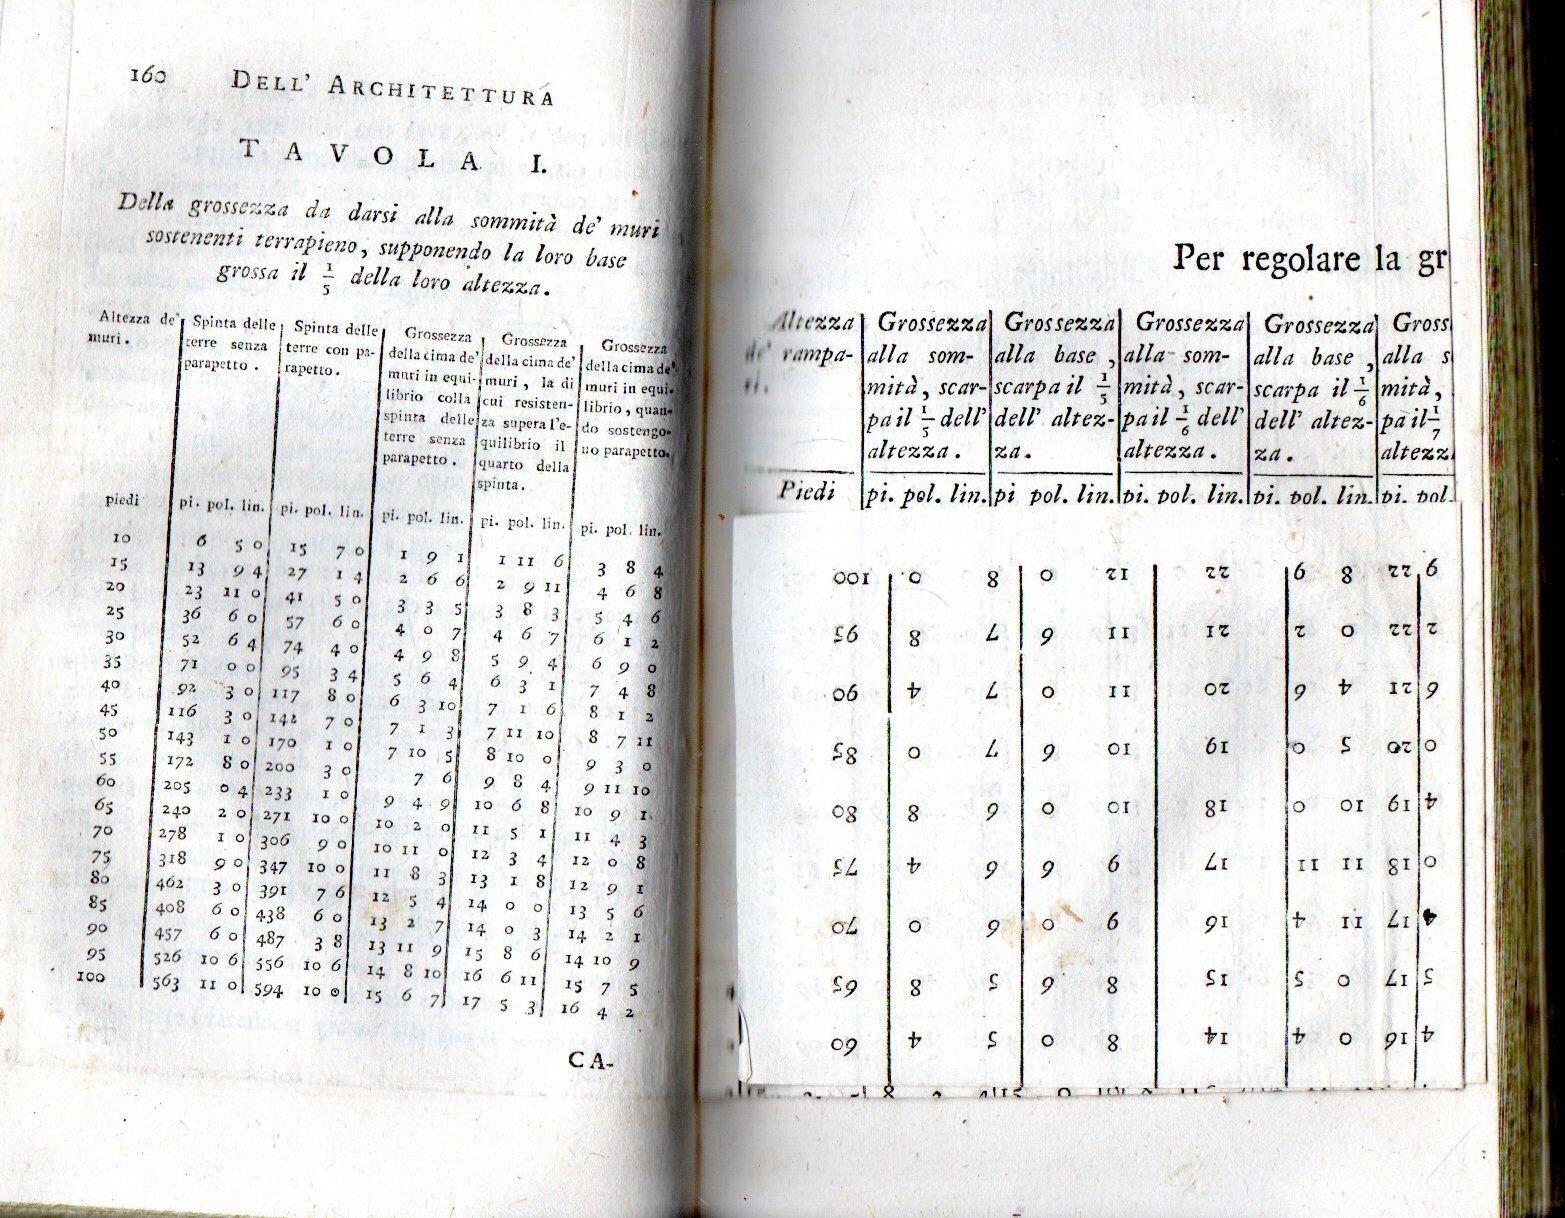 160 DELL' ARCHITETTURA
TAVOLA I.
Della grossezza da darsi alla sommità de' muri
sostenenti terrapieno, supponendo la loro base
grossa il 1/5 della loro altezza.
Altezza de' muri. | Spinta delle terre senza parapetto. | Spinta delle terre con parapetto. | Grossezza della cima de' muri in equilibrio colla spinta delle terre senza parapetto. | Grossezza della cima de' muri, la di cui resistenza supera l'equilibrio il quarto della spinta. | Grossezza della cima de' muri in equilibrio, quando sostengono parapetto.
piedi | pi. pol. lin. | pi. pol. lin. | pi. pol. lin. | pi. pol. lin. | pi. pol. lin.
10 | 6 5 0 | 15 7 0 | 1 9 1 | 1 11 6 | 3 8 4
15 | 13 9 4 | 27 1 4 | 2 6 6 | 2 9 11 | 4 6 8
20 | 23 11 0 | 41 5 0 | 3 3 5 | 3 8 3 | 5 4 6
25 | 36 6 0 | 57 6 0 | 4 0 7 | 4 6 7 | 6 1 2
30 | 52 6 4 | 74 4 0 | 4 9 8 | 5 9 4 | 6 9 0
35 | 71 0 0 | 95 3 4 | 5 6 4 | 6 3 1 | 7 4 8
40 | 92 3 0 | 117 8 0 | 6 3 10 | 7 1 6 | 8 1 2
45 | 116 3 0 | 142 7 0 | 7 1 3 | 7 11 10 | 8 7 11
50 | 143 1 0 | 170 1 0 | 7 10 5 | 8 10 0 | 9 3 0
55 | 172 8 0 | 200 3 0 | 7 6 | 9 8 4 | 9 11 10
60 | 205 0 4 | 233 1 0 | 9 4 9 | 10 6 8 | 10 9 1
65 | 240 2 0 | 271 10 0 | 10 2 0 | 11 5 1 | 11 4 3
70 | 278 1 0 | 306 9 0 | 10 11 0 | 12 3 4 | 12 0 8
75 | 318 9 0 | 347 10 0 | 11 8 3 | 13 1 8 | 12 9 1
80 | 462 3 0 | 391 7 6 | 12 5 4 | 14 0 0 | 13 5 6
85 | 408 6 0 | 438 6 0 | 13 2 7 | 14 0 3 | 14 2 1
90 | 457 6 0 | 487 3 8 | 13 11 9 | 15 8 6 | 14 10 9
95 | 526 10 6 | 556 10 6 | 14 8 10 | 16 6 11 | 15 7 5
100 | 563 11 0 | 594 10 0 | 15 6 7 | 17 5 3 | 16 4 2
CA-
Per regolare la gr
Altezza de' rampa- | Grossezza alla sommità, scarpa il 1/5 dell' altezza. | Grossezza alla base, scarpa il 1/5 dell' altezza. | Grossezza alla sommità, scarpa il 1/6 dell' altezza. | Grossezza alla base, scarpa il 1/6 dell' altezza. | Gross alla s mità, pa il 1/7 altezz
Piedi | pi. pol. lin. | pi pol. lin. | pi. pol. lin. | pi. pol. lin. | pi. pol.
100 | 0 8 | 0 12 | 22 | 6 8 22 | 6
95 | 8 7 | 6 11 | 21 | 2 0 22 | 2
90 | 4 7 | 0 11 | 20 | 6 4 21 | 6
85 | 0 7 | 6 10 | 19 | 0 5 20 | 0
80 | 8 6 | 0 10 | 18 | 0 10 19 | 4
75 | 4 6 | 6 9 | 17 | 11 11 18 | 0
70 | 0 6 | 0 9 | 16 | 4 11 17 | 4
65 | 8 5 | 6 8 | 15 | 5 0 17 | 5
60 | 4 5 | 0 8 | 14 | 4 0 16 | 4